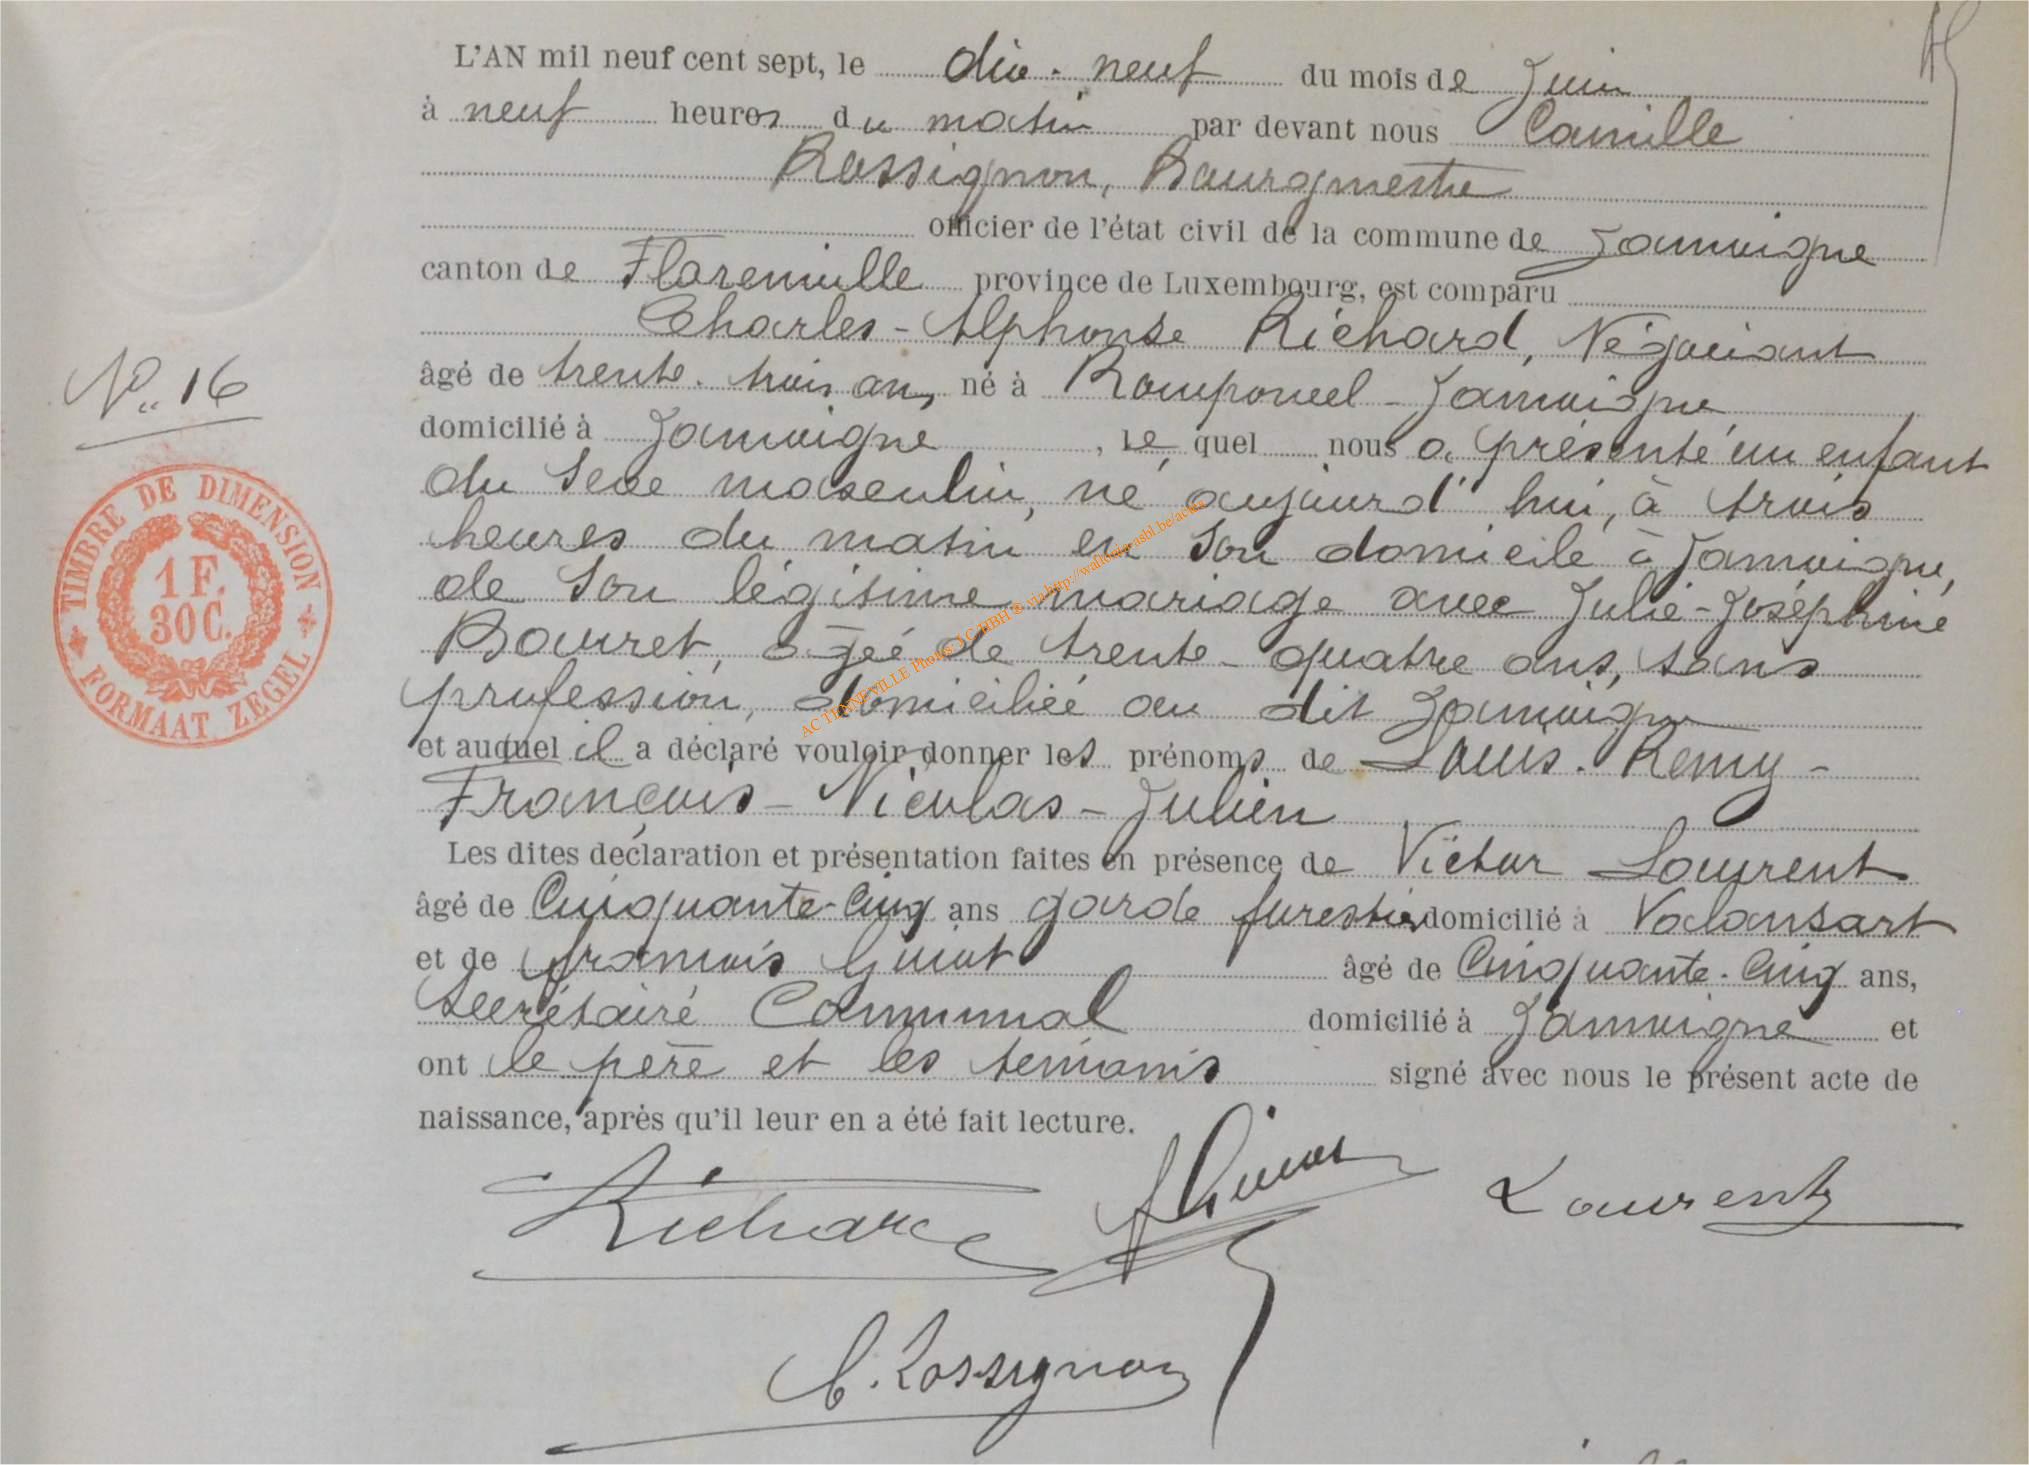 L'AN mil neuf cent sept, le dix-neuf du mois de Juin
à neuf heures du matin par devant nous Camille
Rossignon, Bourgmestre
officier de l'état civil de la commune de Jamoigne
canton de Florenville province de Luxembourg, est comparu
Charles-Alphonse Richard, Négociant
âgé de trente-trois ans, né à Romponcel-Jamoigne
domicilié à Jamoigne, lequel nous a présenté un enfant
du sexe masculin, né aujourd'hui, à trois
heures du matin en son domicile à Jamoigne,
de son légitime mariage avec Julie-Joséphine
Bouret, âgée de trente-quatre ans, sans
profession, domiciliée au dit Jamoigne
et auquel il a déclaré vouloir donner les prénoms de Louis-Remy-
François-Nicolas-Julien
Les dites déclaration et présentation faites en présence de Victor Laurent
âgé de Cinquante-Cinq ans garde forestier domicilié à Valansart
et de François Guiot âgé de Cinquante-Cinq ans,
Secrétaire Communal domicilié à Jamoigne et
ont le père et les témoins signé avec nous le présent acte de
naissance, après qu'il leur en a été fait lecture.
Richard
Guiot
Laurent
C. Rossignon
No 16
TIMBRE DE DIMENSION
1 F.
30 C.
FORMAAT ZEGEL